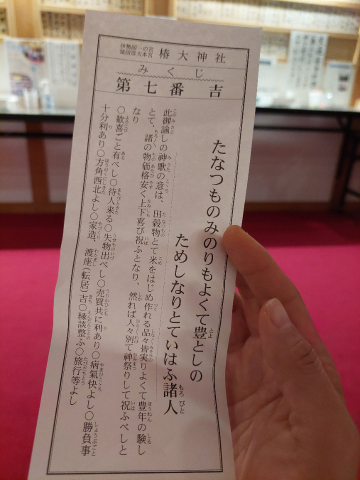 伊勢国一の宮
猿田彦大本宮
椿大神社
みくじ
第七番 吉
たなつものみのりもよくて豊としの
ためしなりとていはふ諸人
此御諭しの神歌の意は、田穀物とて米をはじめ作れる品々皆実りよくて豊年の験し
とて、諸の物価格安く上下喜び祝ふとなり、然れば人々別て神祭りして祝ふべしと
なり
○歓喜ごと有べし○待人来る○失物出べし○売買共に利あり○病気快よし○勝負事
十分利あり○方角西北よし○家造、渡座(転居)吉○縁談整ふ○旅行等よし